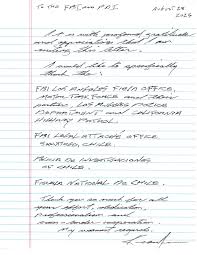 TO THE FBI AND P.D.I.
AUGUST 28
2025
IT IS WITH PROFOUND GRATITUDE
AND APPRECIATION THAT I AM
SENDING THIS LETTER.
I WOULD LIKE TO SPECIFICALLY
THANK THE:
FBI LOS ANGELES FIELD OFFICE,
MAJOR TASK FORCE AND THEIR
PARTNERS, LOS ANGELES POLICE
DEPARTMENT AND CALIFORNIA
HIGHWAY PATROL.
FBI LEGAL ATTACHÉ OFFICE
SANTIAGO, CHILE.
POLICIA DE INVESTIGACIONES
OF CHILE.
NATIONAL DE CHILE.
THANK YOU SO MUCH FOR ALL
YOUR EFFORT, DEDICATION,
PROFESSIONALISM AND
COOPERATION.
MY WARMEST REGARDS.